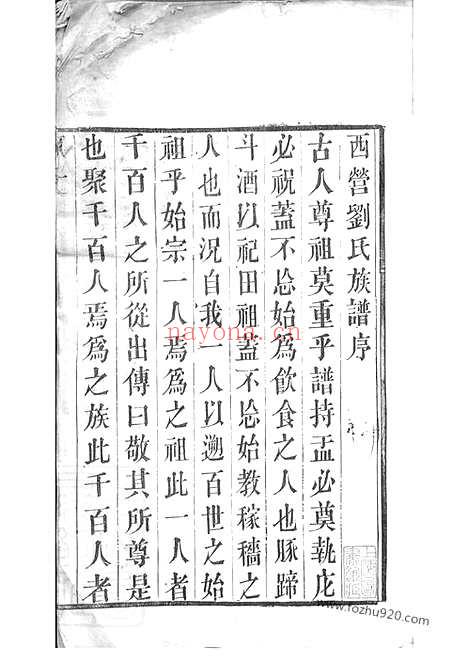 西營劉氏族譜序
古人尊祖莫重乎譜持盂必奠執庀
必祝蓋不忩始為飲食之人也豚蹄
斗酒以祀田祖蓋不忩始教稼穡之
人也而況自我一人以遡百世之始
祖乎始宗一人焉為之祖此一人者
千百人之所從出傳曰敬其所尊是
也聚千百人焉為之族此千百人者
nayona.cn
www.fozhu920.com